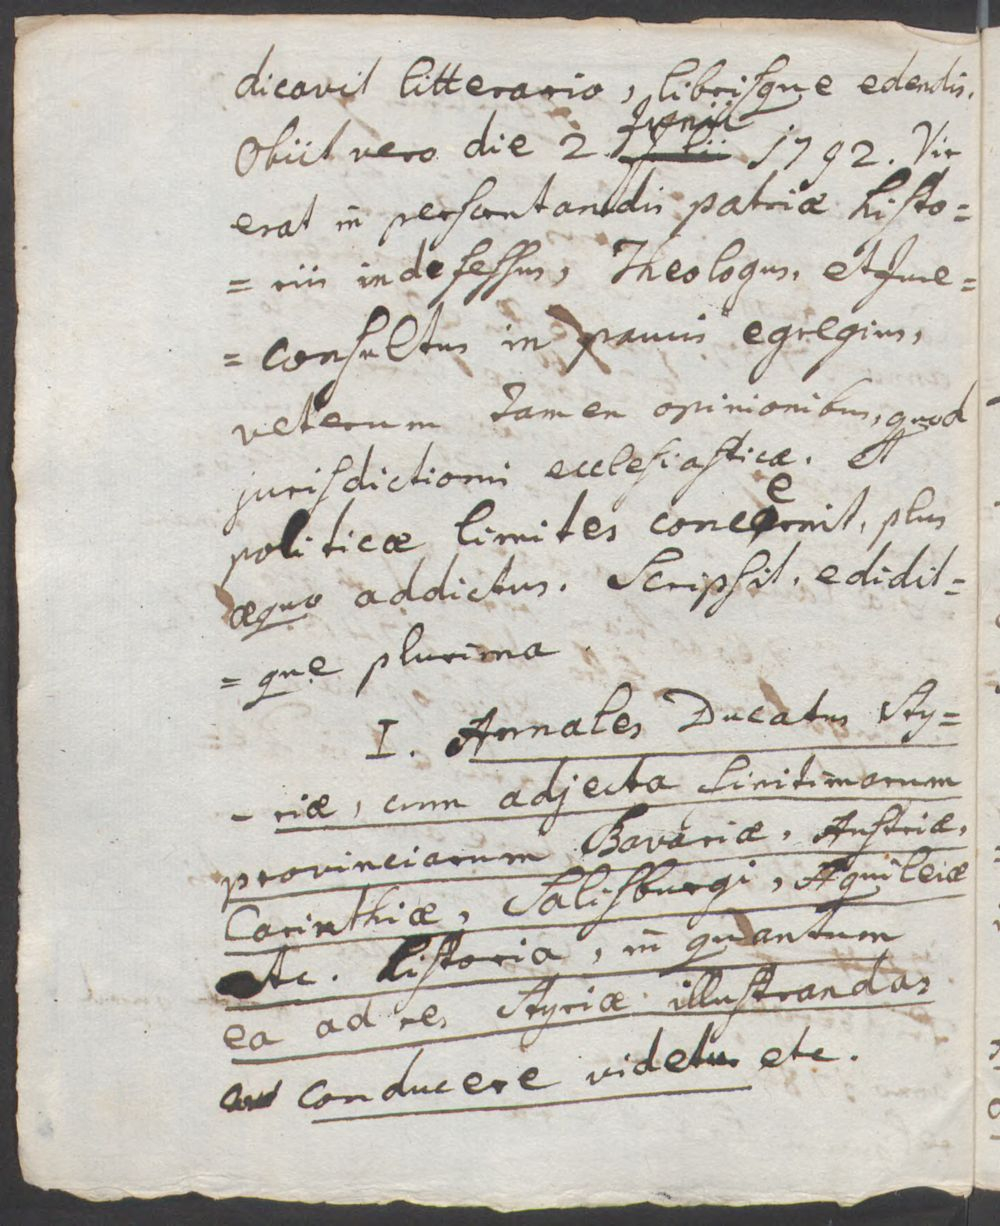 dicavit litterario, librisque edendis.
Junii
Obiit vero die 2 Julii 1792. Vir
erat in perscrutandis patriæ histo=
=riis indefessus, Theologus, et Jure=
=consultus in paucis egregius,
veterum tamen opinionibus, quod
jurisdictionis ecclesiasticæ, et
politicæ limites concernit, plus
æquo addictus. Scripsit, edidit=
=que plurima.
I. Annales Ducatus Sty=
=riæ, cum adjecta finitimarum
provinciarum Bavariæ, Austriæ,
Carinthiæ, Salisburgi, Aquileiæ
etc. historia, in quantum
ea ad res Styriæ illustrandas
conducere videtur etc.